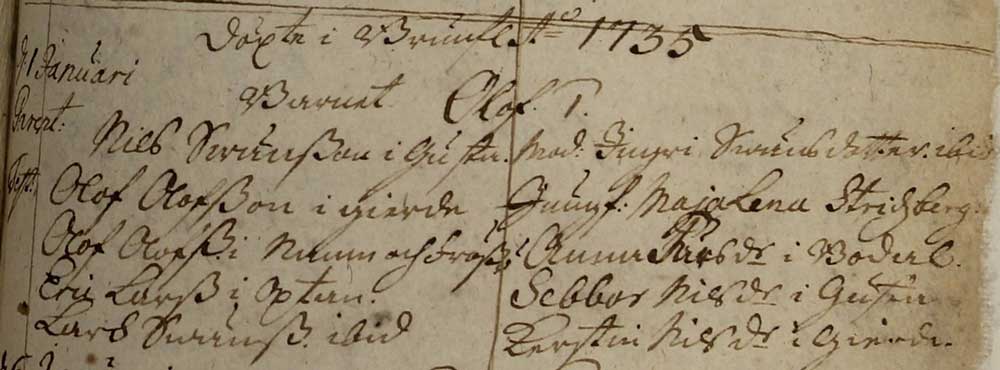 Döpte i Brunfl. Aō 1735
d. 1 Januari
Barnet Olof. P.
Parent: Nils Swensson i Gusta. Mod. Ingri Swensdotter. ibid
Test: Olof Olofsson i gierde Jungf. Maja Lena Strichberg.
Olof Olofss. i och Anna Pärs dr i Bodal.
Eric Larss i Optan. Sebbor Nils dr i Gusta
Lars Swenss. ibid Kerstin Nils dr i Gierde.